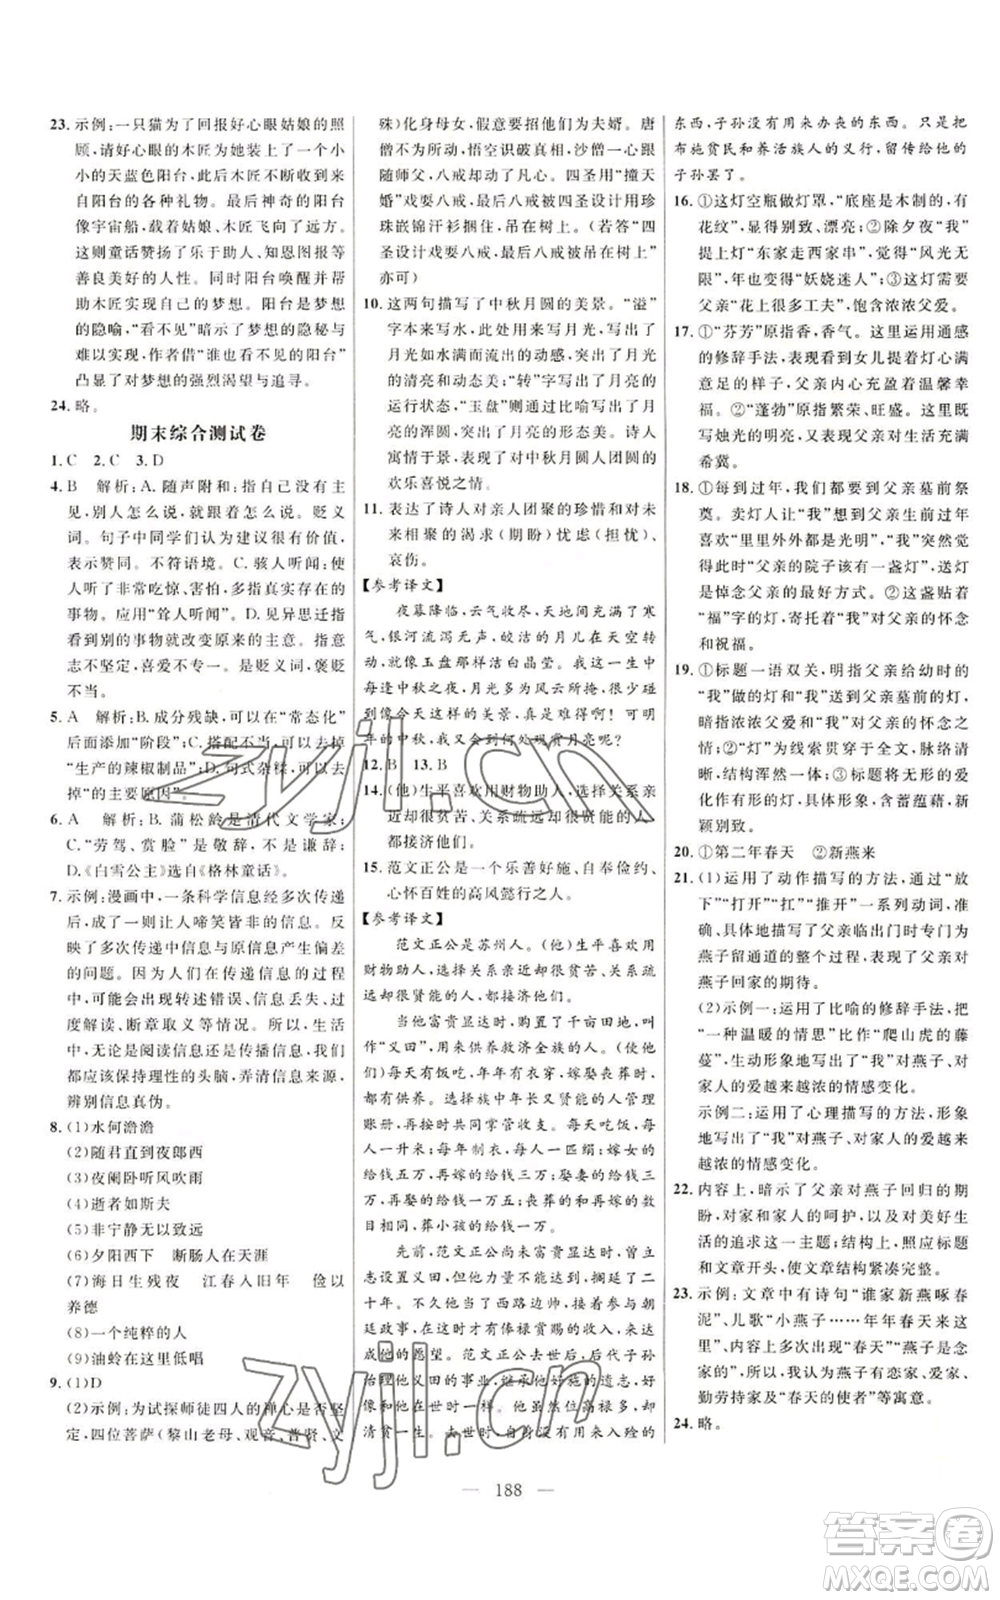 23. 示例:一只猫为了回报好心眼姑娘的照
顾,请好心眼的木匠为她装上了一个小
小的天蓝色阳台,此后木匠不断收到
来自阳台的各种礼物。最后神奇的阳台
像宇宙船,带着姑娘、木匠飞向了远方。
这则童话赞扬了助人、知恩图报等
善良美好的人性。同时阳台唤醒并帮
助木匠实现自己的梦想。阳台是梦想
的隐喻,“看不见”暗示了梦想的隐秘与
难以实现,作者借“谁也看不见的阳台”
凸显了对梦想的强烈渴望与追寻。
24. 略。
期末综合测试卷
1. C 2. C 3. D
4. B 解析:A. 随声附和:指自己没有主
见,别人怎么说,就跟着怎么说,贬义
词。句子中同学们认为建议很有价值,
表示赞同。不符语境。C. 骇人听闻:使
人听了非常吃惊、害怕,多指非常残暴的
事物。应用“耸人听闻”。D. 见异思迁:指
看到别的事物就改变原来的主意。指意
志不坚定,喜爱不专一。是贬义词,褒贬
不当。
5. A 解析:B. 成分残缺,可以在“常态化”
后面添加“阶段”;C. 搭配不当,去掉
“生产的辣椒制品”;D. 句式杂糅,可以去
掉“的主要原因”。
6. A 解析:B. 蒲松龄是清代文学家;
C. “劳驾、赏脸”是敬辞,不是谦辞;
D. 《白雪公主》选自《格林童话》。
7. 示例:漫画中,一条科学信息经多次传递
后,成了一则让人啼笑皆非的信息,反
映了多次传递中信息与原信息产生偏差
的问题。因为人们在传递信息的过程
中,可能会出现转述错误、信息丢失、过
度解读、断章取义等情况。所以,生活
中,无论是阅读信息还是传播信息,我们
都应该保持理性的头脑,弄清信息来源,
辨别信息真伪。
8. (1)水何澹澹
(2)随君直到夜郎西
(3)夜阑卧听风吹雨
(4)逝者如斯夫
(5)非宁静无以致远
(6)夕阳西下 断肠人在天涯
(7)海日生残夜 江春入旧年 俭以
养德
(8)一个纯粹的人
(9)油蛉在这里低唱
9. (1)D
(2)示例:为试探师徒四人的禅心是否坚
定,四位菩萨(黎山老母、观音、普贤、文
殊)化身母女,假意要招他们为夫婿。唐
僧不为所动,悟空识破真相,沙僧一心跟
随师父,八戒却动了凡心。四圣用“撞天
婚”戏耍八戒,最后八戒被四圣用珍
珠嵌锦汗衫捆住,吊在树上。(若答“四
圣设计戏耍八戒,八戒最后被吊在树上”
亦可)
10. 这两句描写了中秋月圆的美景。“溢”
字本来写水,此处用来写月光,突出了月
光如水满而流的动感,突出了月光
的清亮和动态美;“转”字写出了月亮的
运行状态,“玉盘”则通过比喻写出了月
亮的浑圆,突出了月亮的形态美。诗人
寓情于景,表现了对中秋月圆人团圆的
欢乐喜悦之情。
11. 表达了诗人对亲人团聚的珍惜和对未
来相聚的渴求(期盼)忧虑(担忧)、
哀伤。
【参考译文】
夜幕降临,云气收尽,天地间充满了寒
气,银河流泻无声,皎洁的月儿在天空转
动,就像玉盘那样洁白晶莹。我这一生中
每逢中秋之夜,月光多为风云所掩,很少碰
到像今天这样的美景,真是难得啊!可明
年的中秋,我又会到何处观赏月亮呢?
12. B 13. B
14. (他)生平喜欢用财物助人,选择关系
亲近却很贫苦、关系疏远却很贤能的人
都接济他们。
15. 范文正公是一个乐善好施、自奉俭约、
心怀百姓的高风懿行之人。
【参考译文】
范文正公是苏州人。(他)生平喜欢用
财物助人,选择关系亲近却很贫苦、关系疏
远却很贤能的人,都接济他们。
当他富贵显达时,购置了千亩田地,叫
作“义田”,用来供养救济全族的人。(使他
们)天天有饭吃,年年有衣穿。嫁娶丧葬时,
都有供养。选择家族中年长又贤能的人主
管账册,并时时共同掌管收支。每天的饭,
每人一升米;每年的衣,每人一匹绢;嫁女
的给钱五万,再嫁的给钱三万;娶妻的给钱
三万,再娶的给钱一万五;丧葬的花费与再嫁
数目相同,葬小孩的给钱一万。
先前,范文正公尚未富贵显达时,曾立
志想设置义田,但力不从心,搁延了二
十年。不久他当了西路边帅,于是又参与朝
廷政事,从此才有俸禄赏赐的收入,来完
成他的愿望。范文正公去世后,后代子孙
治理他义田的事业,继承他好施的遗志,
和他在世时一样。他虽位高禄多,却终
清贫一生。去世时,甚至没有用来入殓的
东西,子孙没有用来办丧的东西。只是把
布施贫民和养活族人的义行,留传给他的
子孙罢了。
16. ①这灯空瓶做灯罩,“底座是木制的,有
花纹”,显得别致、漂亮;②除夕夜“我”
提上灯“东家走西家串”,觉得“风光无
限”,年也变得“妖娆迷人”;③这灯需要
父亲“花上很多工夫”,饱含浓浓父爱。
17. ①“芬芳”原指香,香气。这里运用通感
的修辞手法,表现看到女儿提着灯心
满意足的样子,父亲内心充盈着温馨幸
福。②“蓬勃”原指繁荣、旺盛。此处描
写烛光的明亮,反衬出父亲对生活充满
希冀。
18. ①每到过年,我们都到父亲墓前祭
奠。卖灯人让“我”想起父亲生前过年
喜欢“里里外外都是光明”,我们觉得
“父亲的院子该有一盏灯”,送灯
是悼念父亲的最好方式。②这盏贴着
“福”字的灯,寄托了“我”对父亲的怀念
和祝福。
19. ①标题一语双关,明指父亲给幼时的
“我”做的灯和“我”送到父亲墓前的灯,
暗指浓浓父爱和“我”对父亲的怀念之
情;②标题作为线索贯穿于全文,脉络清
晰,结构浑然一体;③标题将无形的父
爱化作有形的灯,具体形象,含蓄蕴藉,新
颖别致。
20. ①第二年春天 ②新燕来
21. (1)运用了动作描写的方法,通过“放
下”“打开”“扛”“推开”一系列动词,准
确、具体地描写了父亲临出门时专门为
燕子留通道的整个过程,表现了父亲对
燕子回家的期待。
(2)示例一:运用了比喻的修辞手法,把
“一种温暖的情思”比作“爬山虎的藤
蔓”,生动形象地写出了“我”对燕子、对
家人的爱越来越浓的情感变化。
示例二:运用了心理描写的方法,形象
地写出了“我”对燕子、对家人的爱越来
越浓的情感变化。
22. 内容上,暗示了父亲对燕子回归的期
盼,对家和家人的呵护,以及对美好生
活的追求这一主题;结构上,照应标题
和文章开头,使文章结构紧凑完整。
23. 示例:文章中有诗句“谁家新燕啄春
泥”、儿歌“小燕子……年年春天来这
里”、内容上多处表现了“燕子是恋
家的”,所以,我认为燕子有爱心、爱家、
勤劳持家及“春天的使者”等寓意。
24. 略。
— 188 —
zyjl.cn
zyjl.cn
答案圈